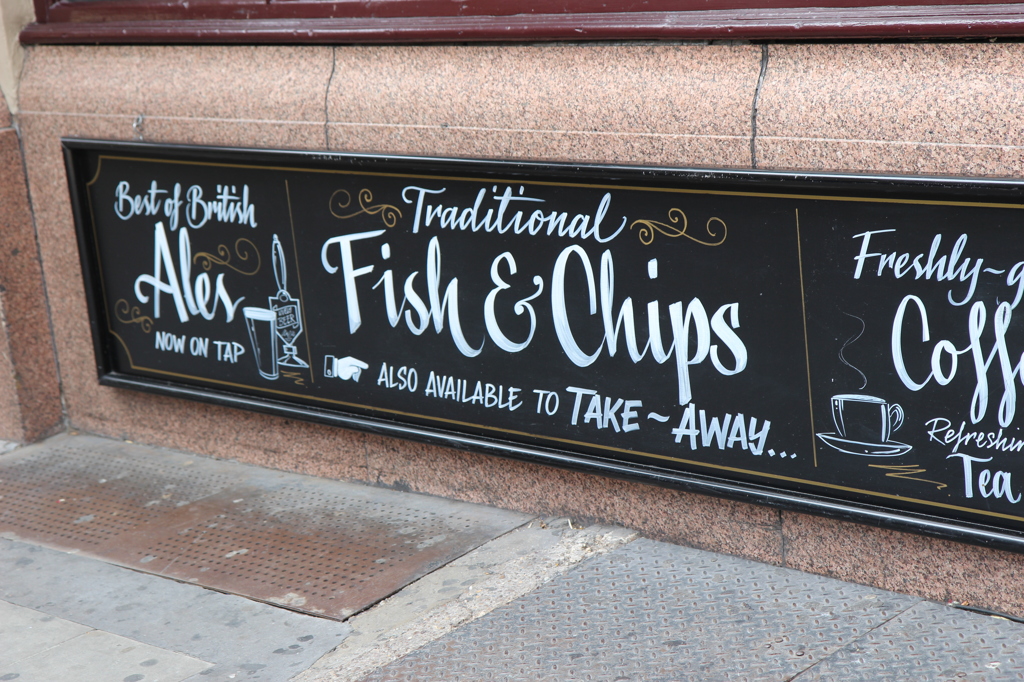 Best of British
Ales
NOW ON TAP
Traditional
Fish & Chips
ALSO AVAILABLE TO TAKE~AWAY...
Freshly~g
Coffe
Refreshin
Tea